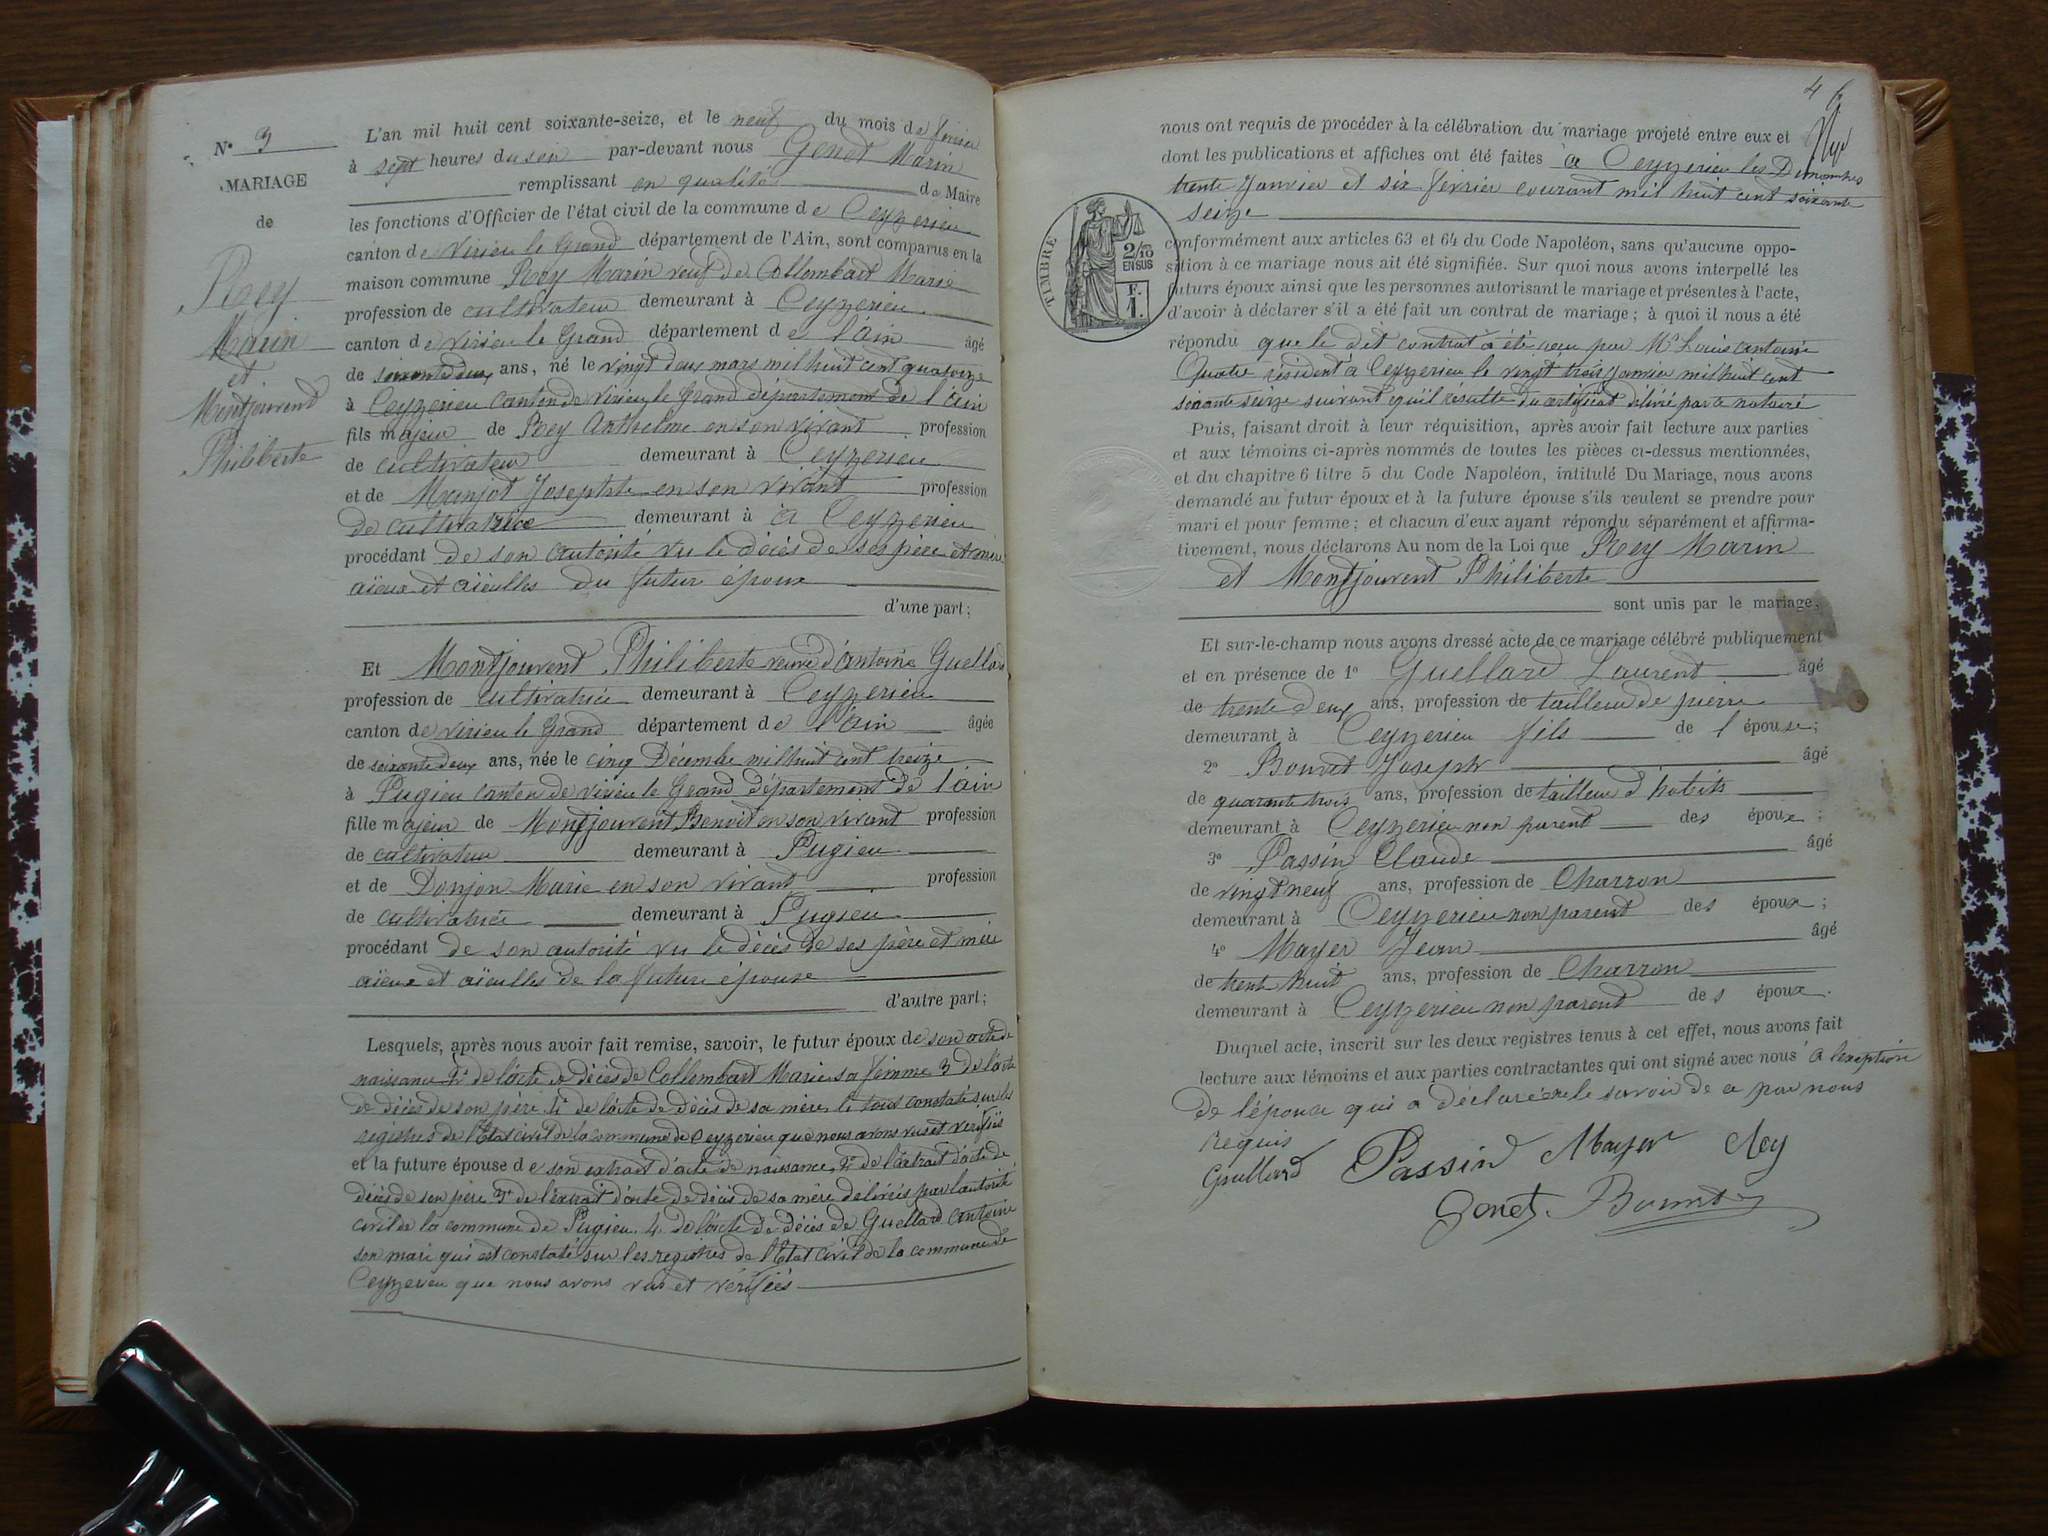 N° 3
MARIAGE
de
Rey
Marin
et
Montjouvent
Philiberte
L'an mil huit cent soixante-seize, et le neuf du mois de février
à sept heures du soir par-devant nous Genet Marin
remplissant en qualité de Maire
les fonctions d'Officier de l'état civil de la commune de Ceyzerieu
canton de Virieu le Grand département de l'Ain, sont comparus en la
maison commune Rey Marin veuf de Collombart Marie
profession de cultivateur demeurant à Ceyzerieu
canton de Virieu le Grand département de l'ain âgé
de soixante deux ans, né le vingt deux mars mil huit cent quatorze
à Ceyzerieu canton de Virieu le Grand département de l'ain
fils majeur de Rey Anthelme en son vivant profession
de cultivateur demeurant à Ceyzerieu
et de Manjot Josephte en son vivant profession
de cultivatrice demeurant à à Ceyzerieu
procédant de son autorité vu le décès de ses père et mère
aïeux et aïeulles du futur époux
d'une part;
Et Montjouvent Philiberte veuve d'Antoine Guellard
profession de cultivatrice demeurant à Ceyzerieu
canton de Virieu le Grand département de l'ain âgée
de soixante deux ans, née le cinq Décembre mil huit cent treize
à Pugieu canton de Virieu le Grand département de l'ain
fille majeur de Montjouvent Benoit en son vivant profession
de cultivateur demeurant à Pugieu
et de Donjon Marie en son vivant profession
de cultivatrice demeurant à Pugieu
procédant de son autorité vu le décès de ses père et mère
aïeux et aïeulles de la future épouse
d'autre part;
Lesquels, après nous avoir fait remise, savoir, le futur époux de son acte de
naissance 2° de l'acte de décès de Collombart Marie sa femme 3 de l'acte
de décès de son père 4° de l'acte de décès de sa mère le tout constaté sur les
registres de l'Etat civil de la commune de Ceyzerieu que nous avons vus et vérifiés
et la future épouse de son extrait d'acte de naissance 2° de l'extrait d'acte de
décès de son père 3° de l'extrait d'acte de décès de sa mère délivrés par l'autorité
civil de la commune de Pugieu 4 de l'acte de décès de Guellard antoine
son mari qui est constaté sur les registres de l'Etat civil de la commune de
Ceyzerieu que nous avons vus et vérifiés
4
nous ont requis de procéder à la célébration du mariage projeté entre eux et
dont les publications et affiches ont été faites à Ceyzerieu les Dimanches
trente Janvier et six février courant mil huit cent soixante
seize
TIMBRE
2/10
EN SUS
F.
1.
conformément aux articles 63 et 64 du Code Napoléon, sans qu'aucune oppo-
sition à ce mariage nous ait été signifiée. Sur quoi nous avons interpellé les
futurs époux ainsi que les personnes autorisant le mariage et présentes à l'acte,
d'avoir à déclarer s'il a été fait un contrat de mariage; à quoi il nous a été
répondu que le dit contrat a été reçu par Me Louis antoine
résident à Ceyzerieu le vingt trois Janvier mil huit cent
soixante seize suivant qu'il résulte du certificat délivré par te notaire
Puis, faisant droit à leur réquisition, après avoir fait lecture aux parties
et aux témoins ci-après nommés de toutes les pièces ci-dessus mentionnées,
et du chapitre 6 titre 5 du Code Napoléon, intitulé Du Mariage, nous avons
demandé au futur époux et à la future épouse s'ils veulent se prendre pour
mari et pour femme; et chacun d'eux ayant répondu séparément et affirma-
tivement, nous déclarons Au nom de la Loi que Rey Marin
et Montjouvent Philiberte
sont unis par le mariage.
Et sur-le-champ nous avons dressé acte de ce mariage célébré publiquement
et en présence de 1° Guellard Laurent âgé
de trente deux ans, profession de tailleur de pierre
demeurant à Ceyzerieu fils de l'épouse;
2° Bonnet Joseph âgé
de quarante trois ans, profession de tailleur d'habits
demeurant à Ceyzerieu non parent des époux;
3° Passin Claude âgé
de vingt neuf ans, profession de Charron
demeurant à Ceyzerieu non parent des époux;
4° Mayer Jean âgé
de trente huit ans, profession de Charron
demeurant à Ceyzerieu non parent des époux.
Duquel acte, inscrit sur les deux registres tenus à cet effet, nous avons fait
lecture aux témoins et aux parties contractantes qui ont signé avec nous à l'exception
de l'épouse qui a déclaré ne le savoir de ce par nous
requis
Guellard Passin Mayer Rey
Genet Bonnet